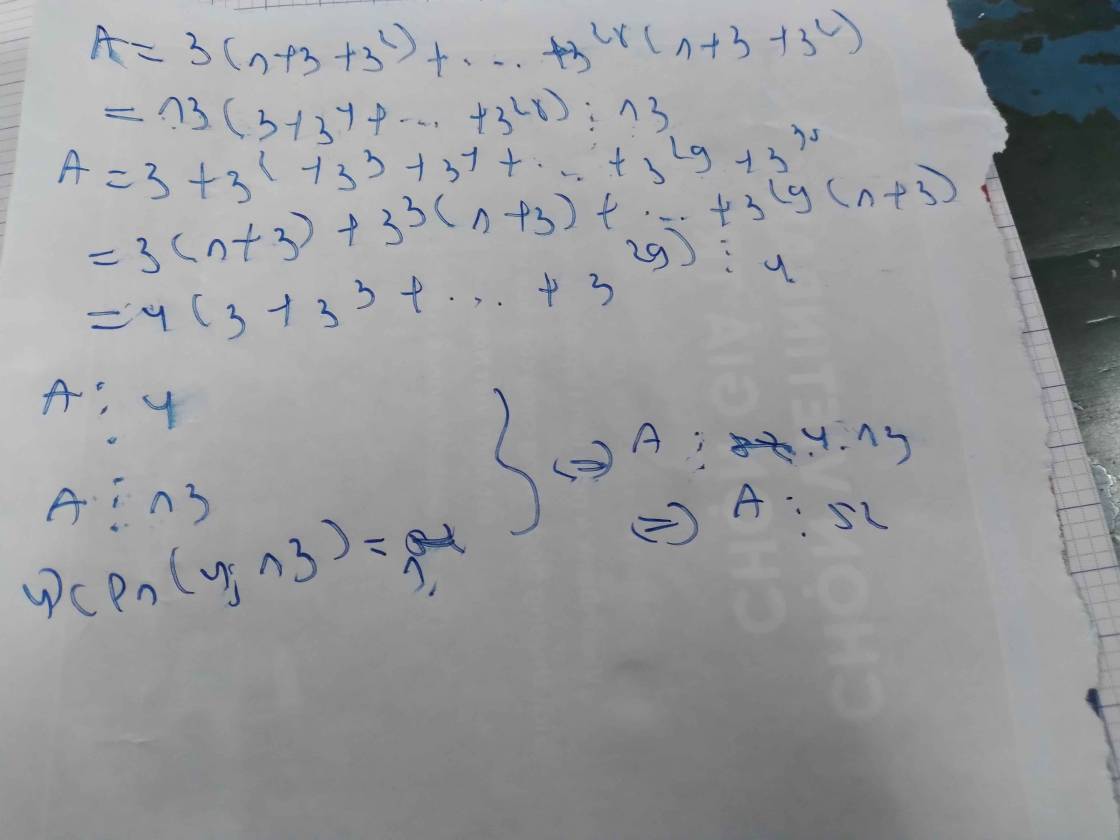 A = 3(1+3+3²) + ... + 3²⁸(1+3+3²)
= 13(3+3⁴+ ... +3²⁸) ⋮ 13
A = 3 + 3² + 3³ + 3⁴ + ... + 3²⁹ + 3³⁰
= 3(1+3) + 3³(1+3) + ... + 3²⁹(1+3)
= 4(3 + 3³ + ... + 3²⁹) ⋮ 4
A ⋮ 4
A ⋮ 13
ƯCLN(4; 13) = 1
⇔ A ⋮ 4.13
⇔ A ⋮ 52